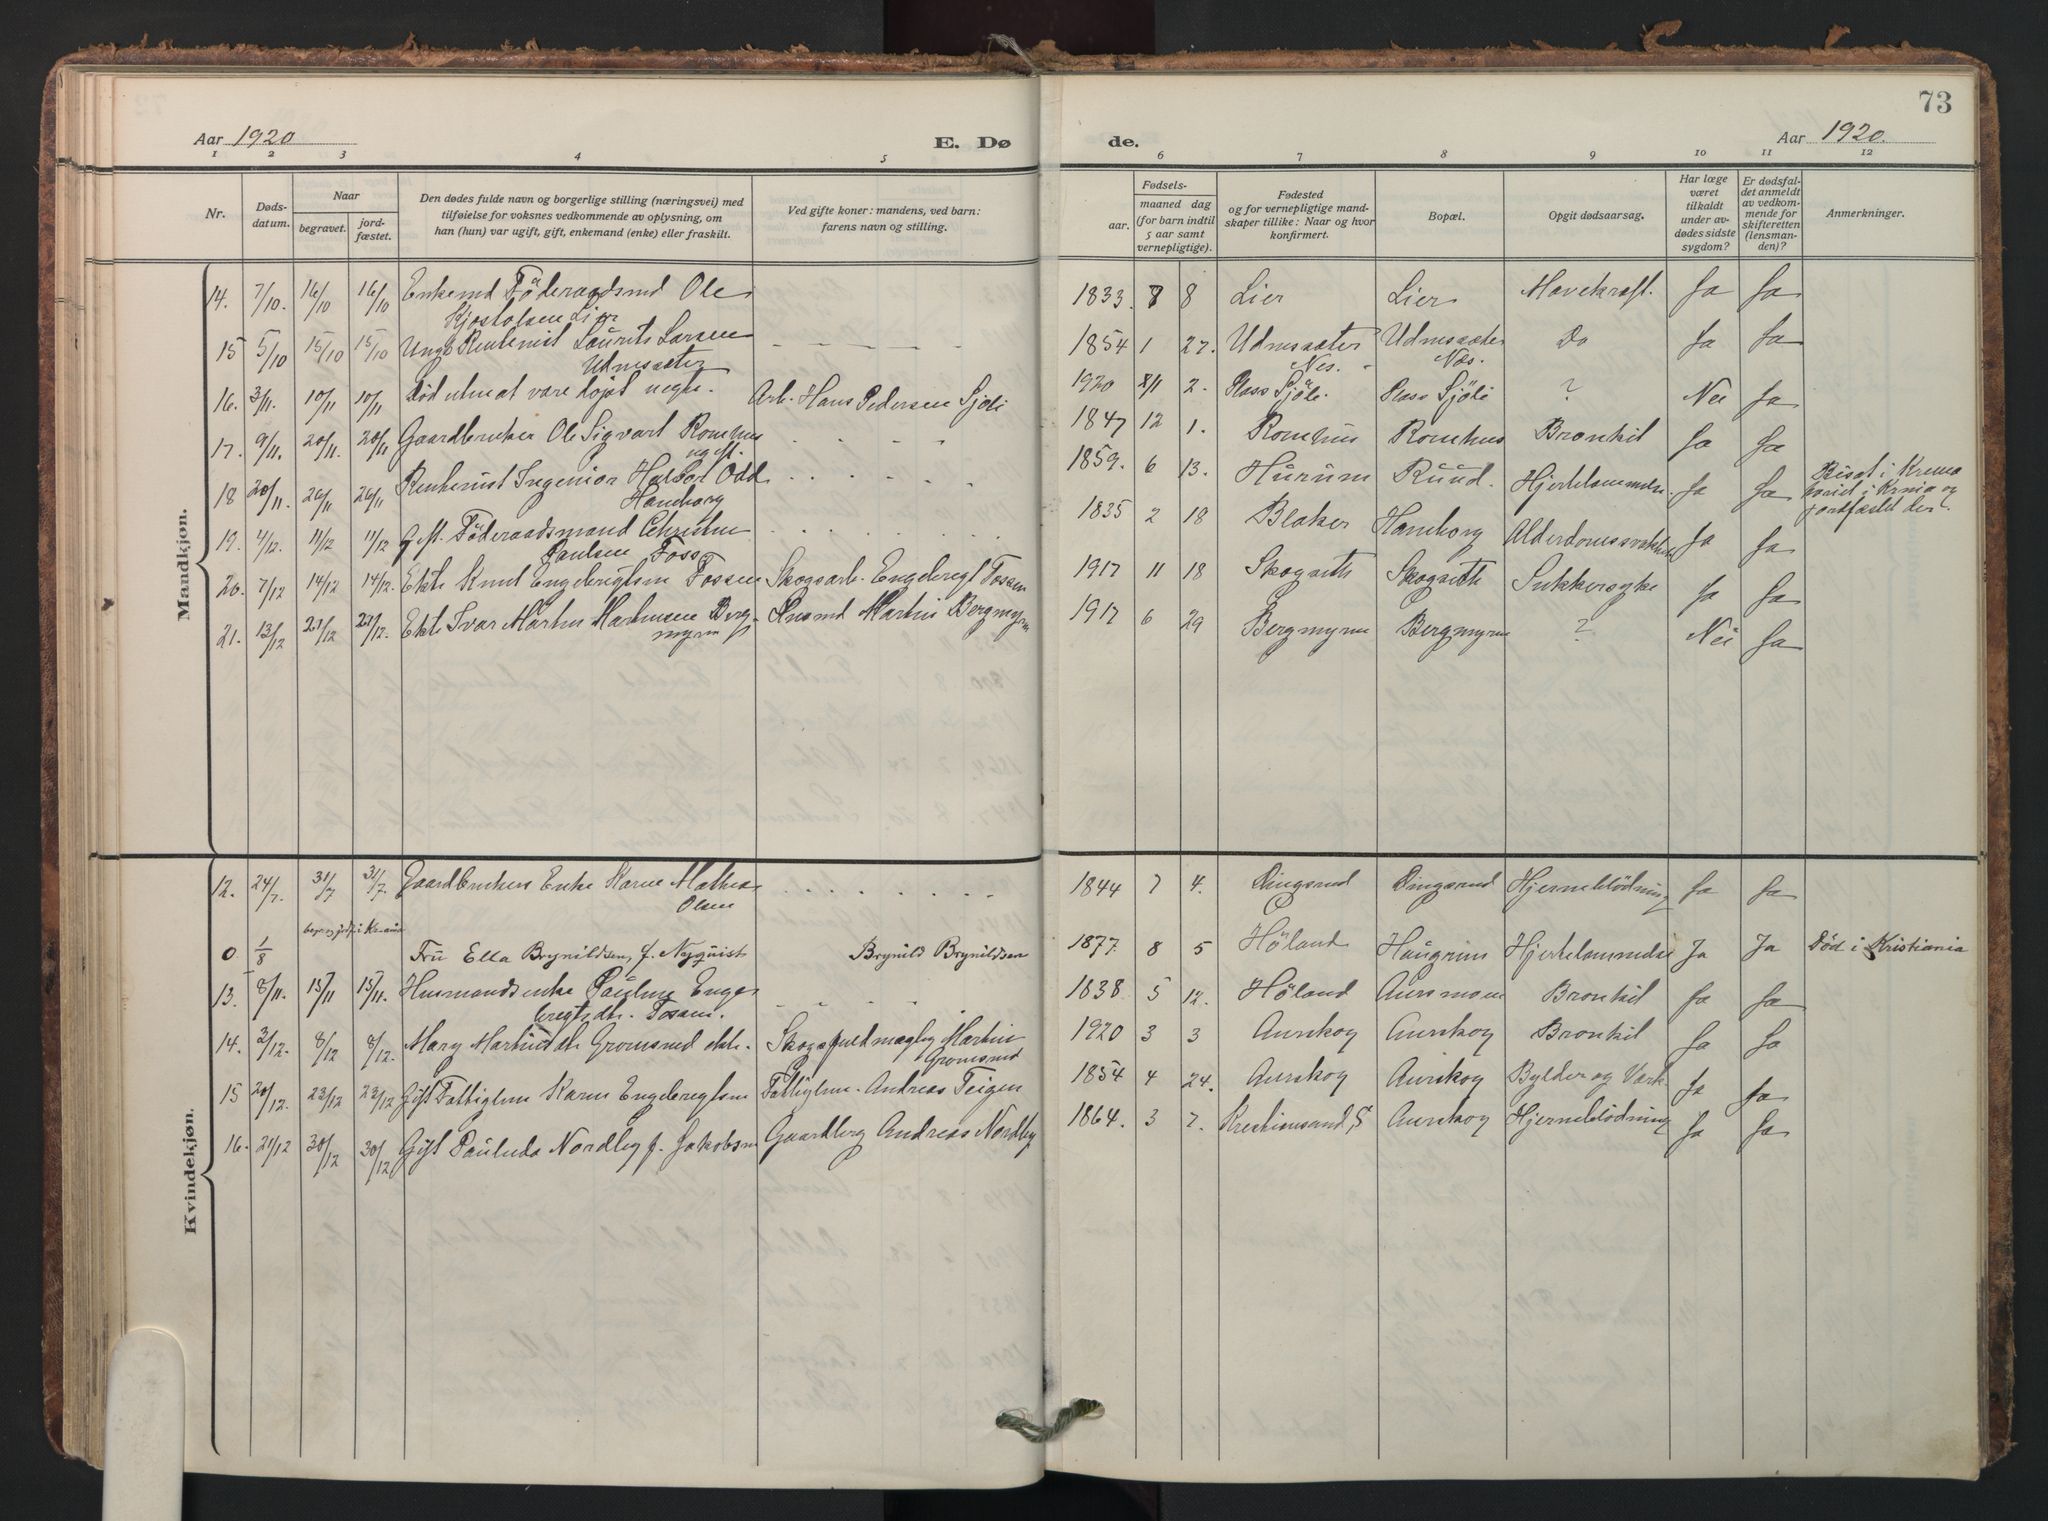 73
Aar 1920
E. Dø
de.
Aar 1920.
1 2 3 4 5 6 7 8 9 10 11 12
Nr.
Døds-
datum.
Naar
begravet.
jord-
fæstet.
Den dødes fulde navn og borgerlige stilling (næringsvei) med
tilføielse for voksnes vedkommende av oplysning, om
han (hun) var ugift, gift, enkemand (enke) eller fraskilt.
Ved gifte koner: mandens, ved barn:
farens navn og stilling.
Fødsels-
aar. maaned dag
(for barn indtil
5 aar samt
vernepligtige).
Fødested
og for vernepligtige mand-
skaper tillike: Naar og hvor
konfirmert.
Bopæl.
Opgit dødsaarsag.
Har læge
været
tilkaldt
under av-
dødes sidste
sygdom?
Er dødsfal-
det anmeldt
av vedkom-
mende for
skifteretten
(lensman-
den)?
Anmerkninger.
Mandkjøn.
14. 7/10. 16/10 16/10 Enkemd Föderaadsmd Ole 1833 8 8 Lier Lier Mavekræft. Ja Ja
Kjostolsen Lier
15 5/10 15/10 15/10 Ungk. Rentenist Laurits Larsen 1854 1 27. Udnesaeter Udnesaeter Do Ja Ja
Udnesaeter Nes. Næs.
16. 3/11. 10/11 10/11 Död uten at være döpt Arb. Hans Pedersen Sjöli 1920 11 2. Plass Sjöli. Plass Sjöli ? Nei Ja
17. 9/11. 20/11. 20/11 Gaardbruker Ole Sigvart Romhus 1847 12 1. Romhus Romhus Bronkit Ja Ja
ugift.
18 20/11. 26/11 26/11 Rentenist Ingeniör Halvor Odd 1859. 6 13. Hurum Ruud. Hjertelammelse Ja Ja Bisat i Krema
Haneborg toriet i Krnia og
jordfæstet der.
19. 4/12. 11/12 11/12 Gift. Föderaadsmand Christian 1835 2 18 Blaker Haneborg Alderdomssvakhet Ja Ja
Paulsen Foss
20. 7/12 14/12 14/12. Ekte Knut Engebregtsen Fossen Skogsarb. Engebregt Fossen 1917 11 18 Skogseth Skogseth Sukkersyke Ja Ja
21. 13/12 21/12 21/12. Ekte Ivar Martin Martinsen Berg- Martin Bergmyren 1917 6 29 Bergmyren Bergmyren ? Nei Ja
myren
Kvindekjøn.
12. 24/7. 31/7 31/7. Gaardbrukers Enke Karen Mathea 1844 7 4. Dingsrud Dingsrud Hjerneblödning Ja Ja
Olsen
0 1/8 begr. og jordf. i Kr.ania Fru Ella Brynildsen, f. Nyquist Brynild Brynildsen 1877 8 5 Höland Haugrim Hjertelammelse Ja Ja Död i Kristiania
13. 8/11. 15/11 15/11. Husmandsenke Pauline Enge- 1838 5 12. Höland Aursmoen Bronkit Ja Ja
bregtsdtr. Fossen.
14. 2/12. 8/12 8/12. Mary Martinsdtr Gromsrud ekte. Martin 1920 3 3 Aurskog Aurskog Bronkit Ja Ja
Gromsrud
15 20/12. 23/12 23/12 Gift Fattiglem Karen Engebregtsen Fattiglem. Andreas Teigen 1854 4 24. Aurskog Aurskog Bylder og Værk. Ja Ja
16. 21/12 30/12 30/12 Gift Paulude Nordby f. Jakobsen Gaardbrg Andreas Nordby 1864. 3 7. Kristiansand, S Aurskog Hjerneblödning Ja Ja